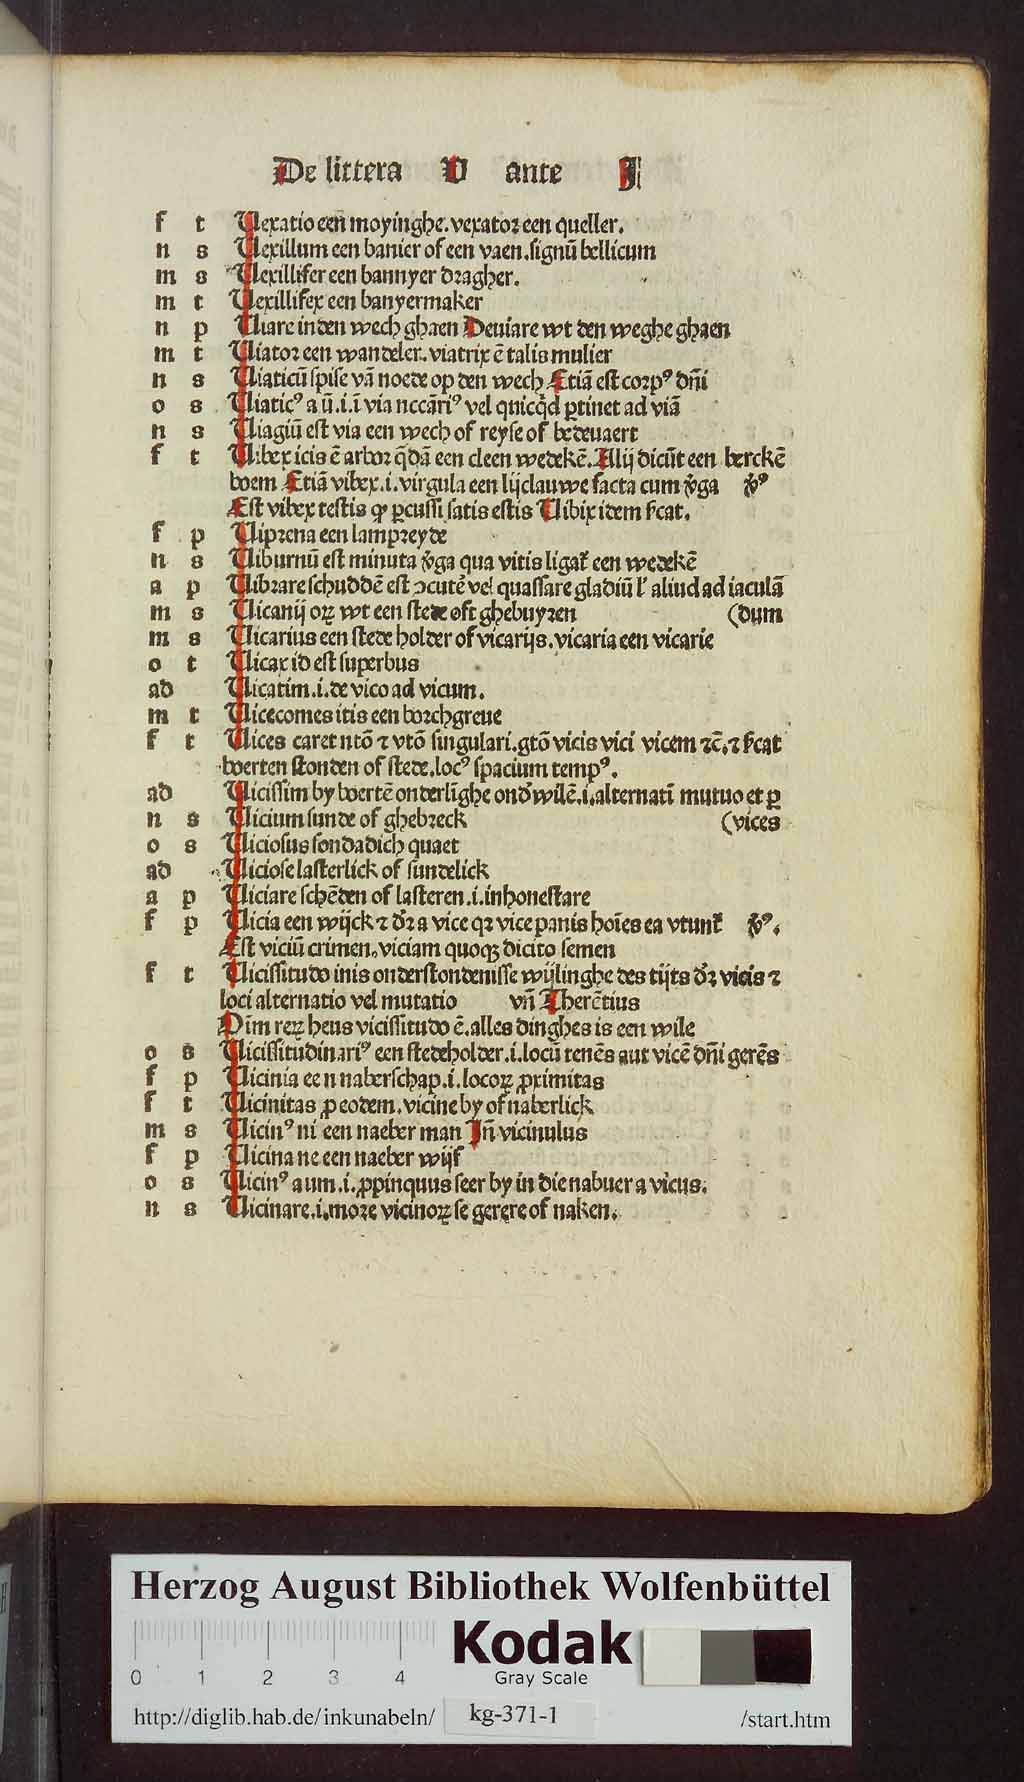 De littera V ante I
f t Vexatio een moyinghe. vexator een queller.
n s Vexillum een banier of een vaen. signū bellicum
m s Vexillifer een bannyer dragher.
m t Vexillifex een banyermaker
n p Viare in den wech ghaen Deuiare wt den weghe ghaen
m t Viator een wandeler. viatrix ē talis mulier
n s Viaticū spise vā noede op den wech Etiā est corpꝰ dn̄i
o s Viaticꝰ a ū. i. ī via nccāriꝰ vel quicq̄d ꝑtinet ad viā
n s Viagiū est via een wech of reyse of bedeuaert
f t Vibex icis ē arbor q̄dā een cleen wedekē. Alij dicūt een berckē
boem Etiā vibex. i. virgula een lijclauwe facta cum v̓ga v̓ꝰ
Est vibex testis ꝙ ꝑcussi satis estis Vibix idem s̓cat.
f p Viprena een lampreyde
n s Viburnū est minuta v̓ga qua vitis ligat̓ een wedekē
a p Vibrare schuddē est ↄcute̓ vel quassare gladiū l̓ aliud ad iaculā
m s Vicanij oꝝ wt een stede oft ghebuyren (dum
m s Vicarius een stede holder of vicarijs. vicaria een vicarie
o t Vicax id est superbus
ad Vicatim. i. de vico ad vicum.
m t Vicecomes itis een borchgreue
f t Vices caret ntō ⁊ vtō singulari. gtō vicis vici vicem ⁊c̄. ⁊ s̓cat
boerten stonden of stede. locꝰ spacium tempꝰ.
ad Vicissim by boertē onderlīghe ond̓wilē. i. alternatī mutuo et ꝑ
n s Vicium sunde of ghebreck (vices
o s Viciosus sondadich quaet
ad Viciose lasterlick of sundelick
a p Viciare schēden of lasteren. i. inhonestare
f p Vicia een wijck ⁊ d̓r a vice qꝛ vice panis hoīes ea vtunt̓ v̓ꝰ.
Est viciū crimen. viciam quoqꝫ dicito semen
f t Vicissitudo inis onderstondenisse wijlinghe des tijts d̓ꝛ vicis ⁊
loci alternatio vel mutatio vn̄ Therētius
Oīm reꝝ heus vicissitudo ē. alles dinghes is een wile
o s Vicissitudinariꝰ een stedeholder. i. locū tenēs aut vicē dn̄i gerēs
f p Vicinia een naberschap. i. locoꝝ ꝓximitas
f t Vicinitas ꝓ eodem. vicine by of naberlick
m s Vicinꝰ ni een naeber man In̄ vicinulus
f p Vicina ne een naeber wijf
o s Vicinꝰ a um. i. ꝓpinquus seer by in die nabuer a vicus.
n s Vicinare. i. more vicinoꝝ se gerere of naken.
Herzog August Bibliothek Wolfenbüttel
Kodak
Gray Scale
0 1 2 3 4
http://diglib.hab.de/inkunabeln/ kg-371-1 /start.htm